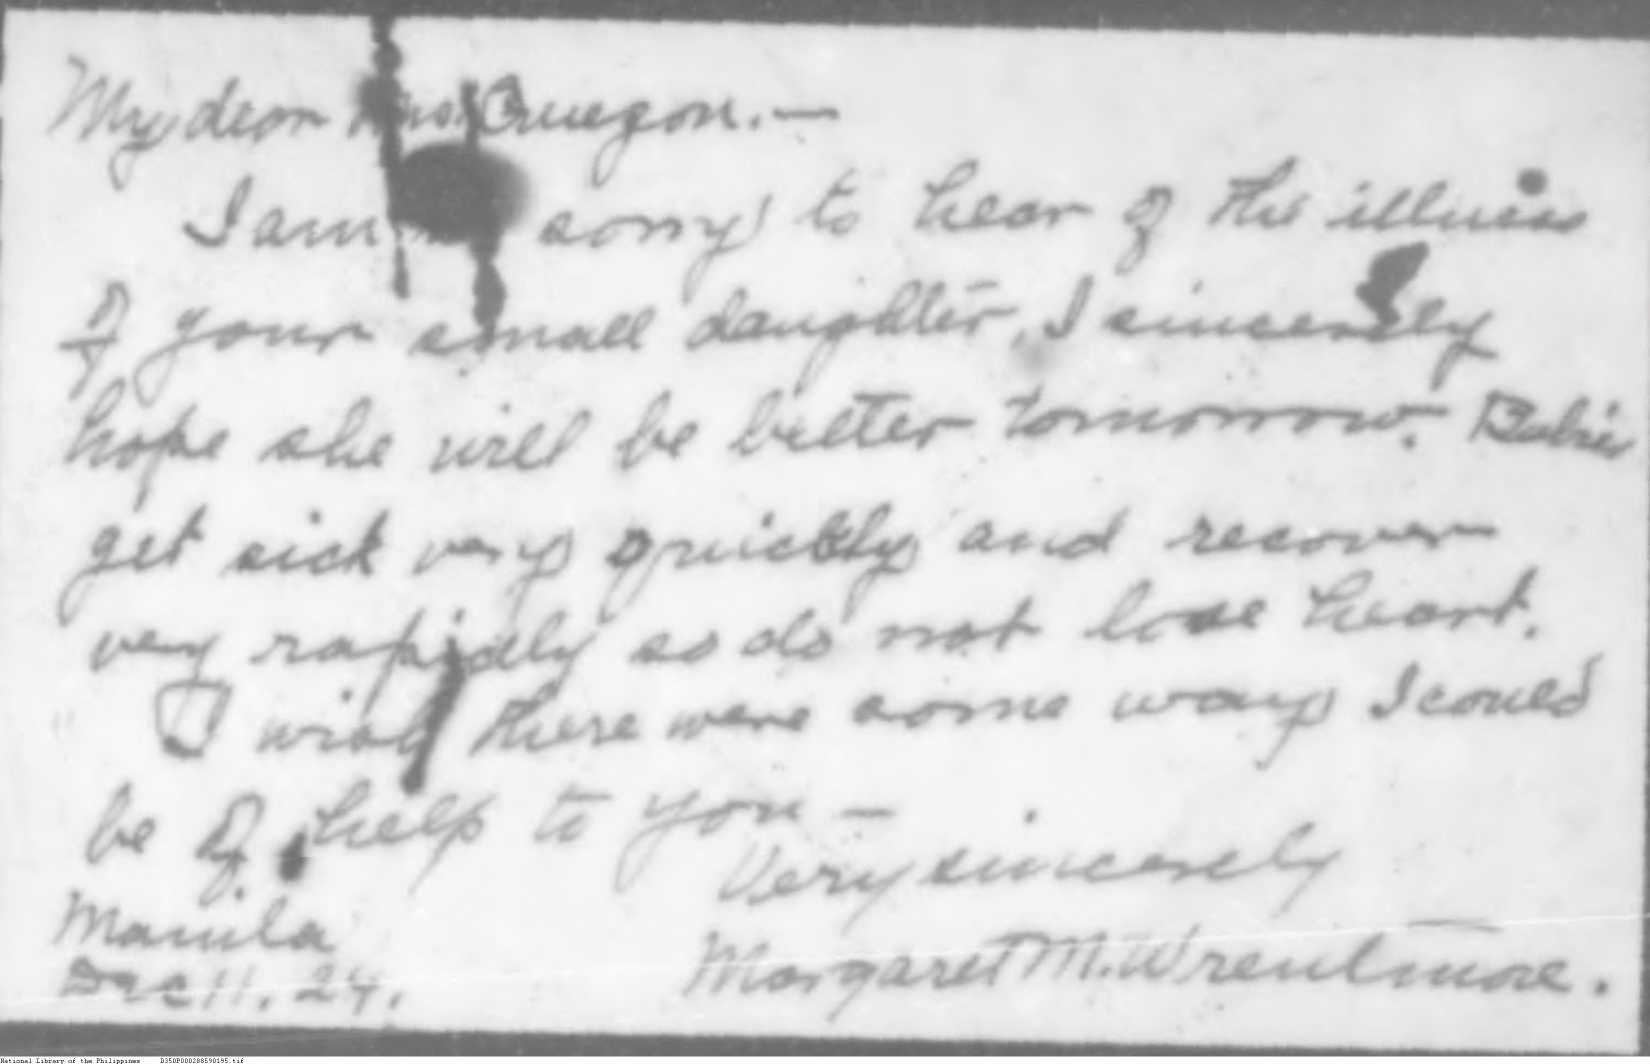 My dear Mrs. Quezon. —
I am sorry to hear of the illness
of your small daughter, I sincerely
hope she will be better tomorrow. Babies
get sick very quickly and recover
very rapidly so do not lose heart.
I wish there were some way I could
be of help to you —
Very sincerely
Margaret M. Wrentmore.
Manila
Dec 11. 24.
National Library of the Philippines D350P000288590195.tif